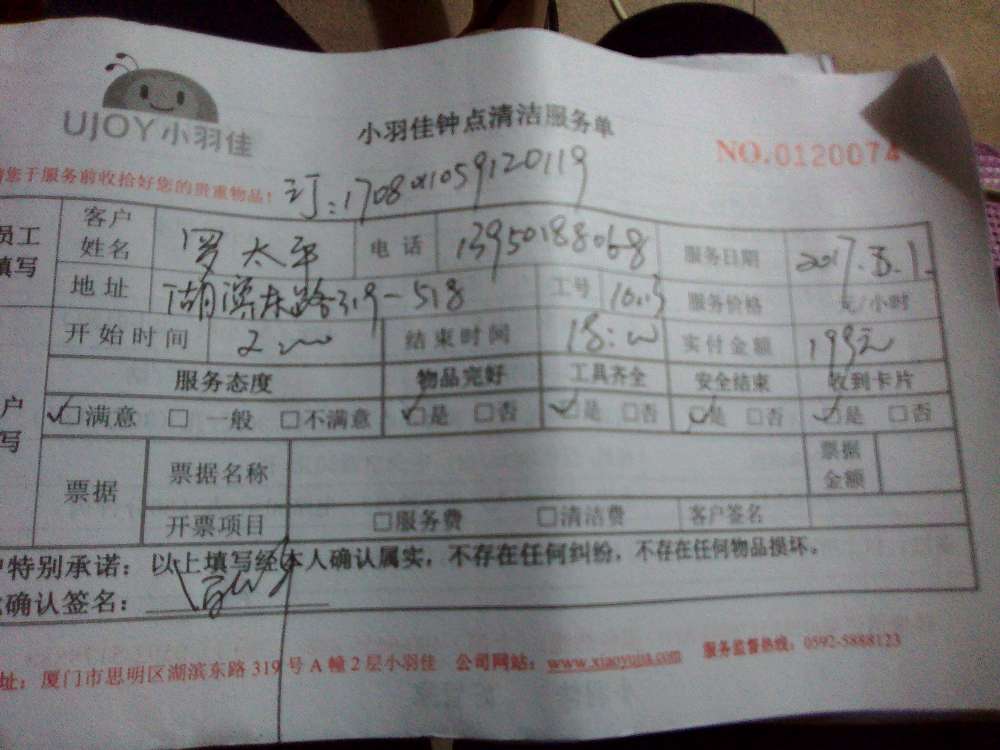 UJOY小羽佳
小羽佳钟点清洁服务单
NO.0120074
您于服务前收拾好您的贵重物品！
订:1708
员工填写
客户姓名 罗太平 电话 13950188068 服务日期 2017.5.1.
地址 湖滨东路319-518 工号 服务价格 元/小时
开始时间 结束时间 18:00 实付金额 199元
服务态度 物品完好 工具齐全 安全结束 收到卡片
户写
✓□满意 □一般 □不满意 ✓□是 □否 ✓□是 □否 ✓□是 □否 ✓□是 □否
票据 票据名称 票据金额
开票项目 □服务费 □清洁费 客户签名
特别承诺：以上填写经本人确认属实，不存在任何纠纷，不存在任何物品损坏。
确认签名：
址：厦门市思明区湖滨东路319号A幢2层小羽佳 公司网站：www.xiaoyujia.com 服务监督热线：0592-5888123